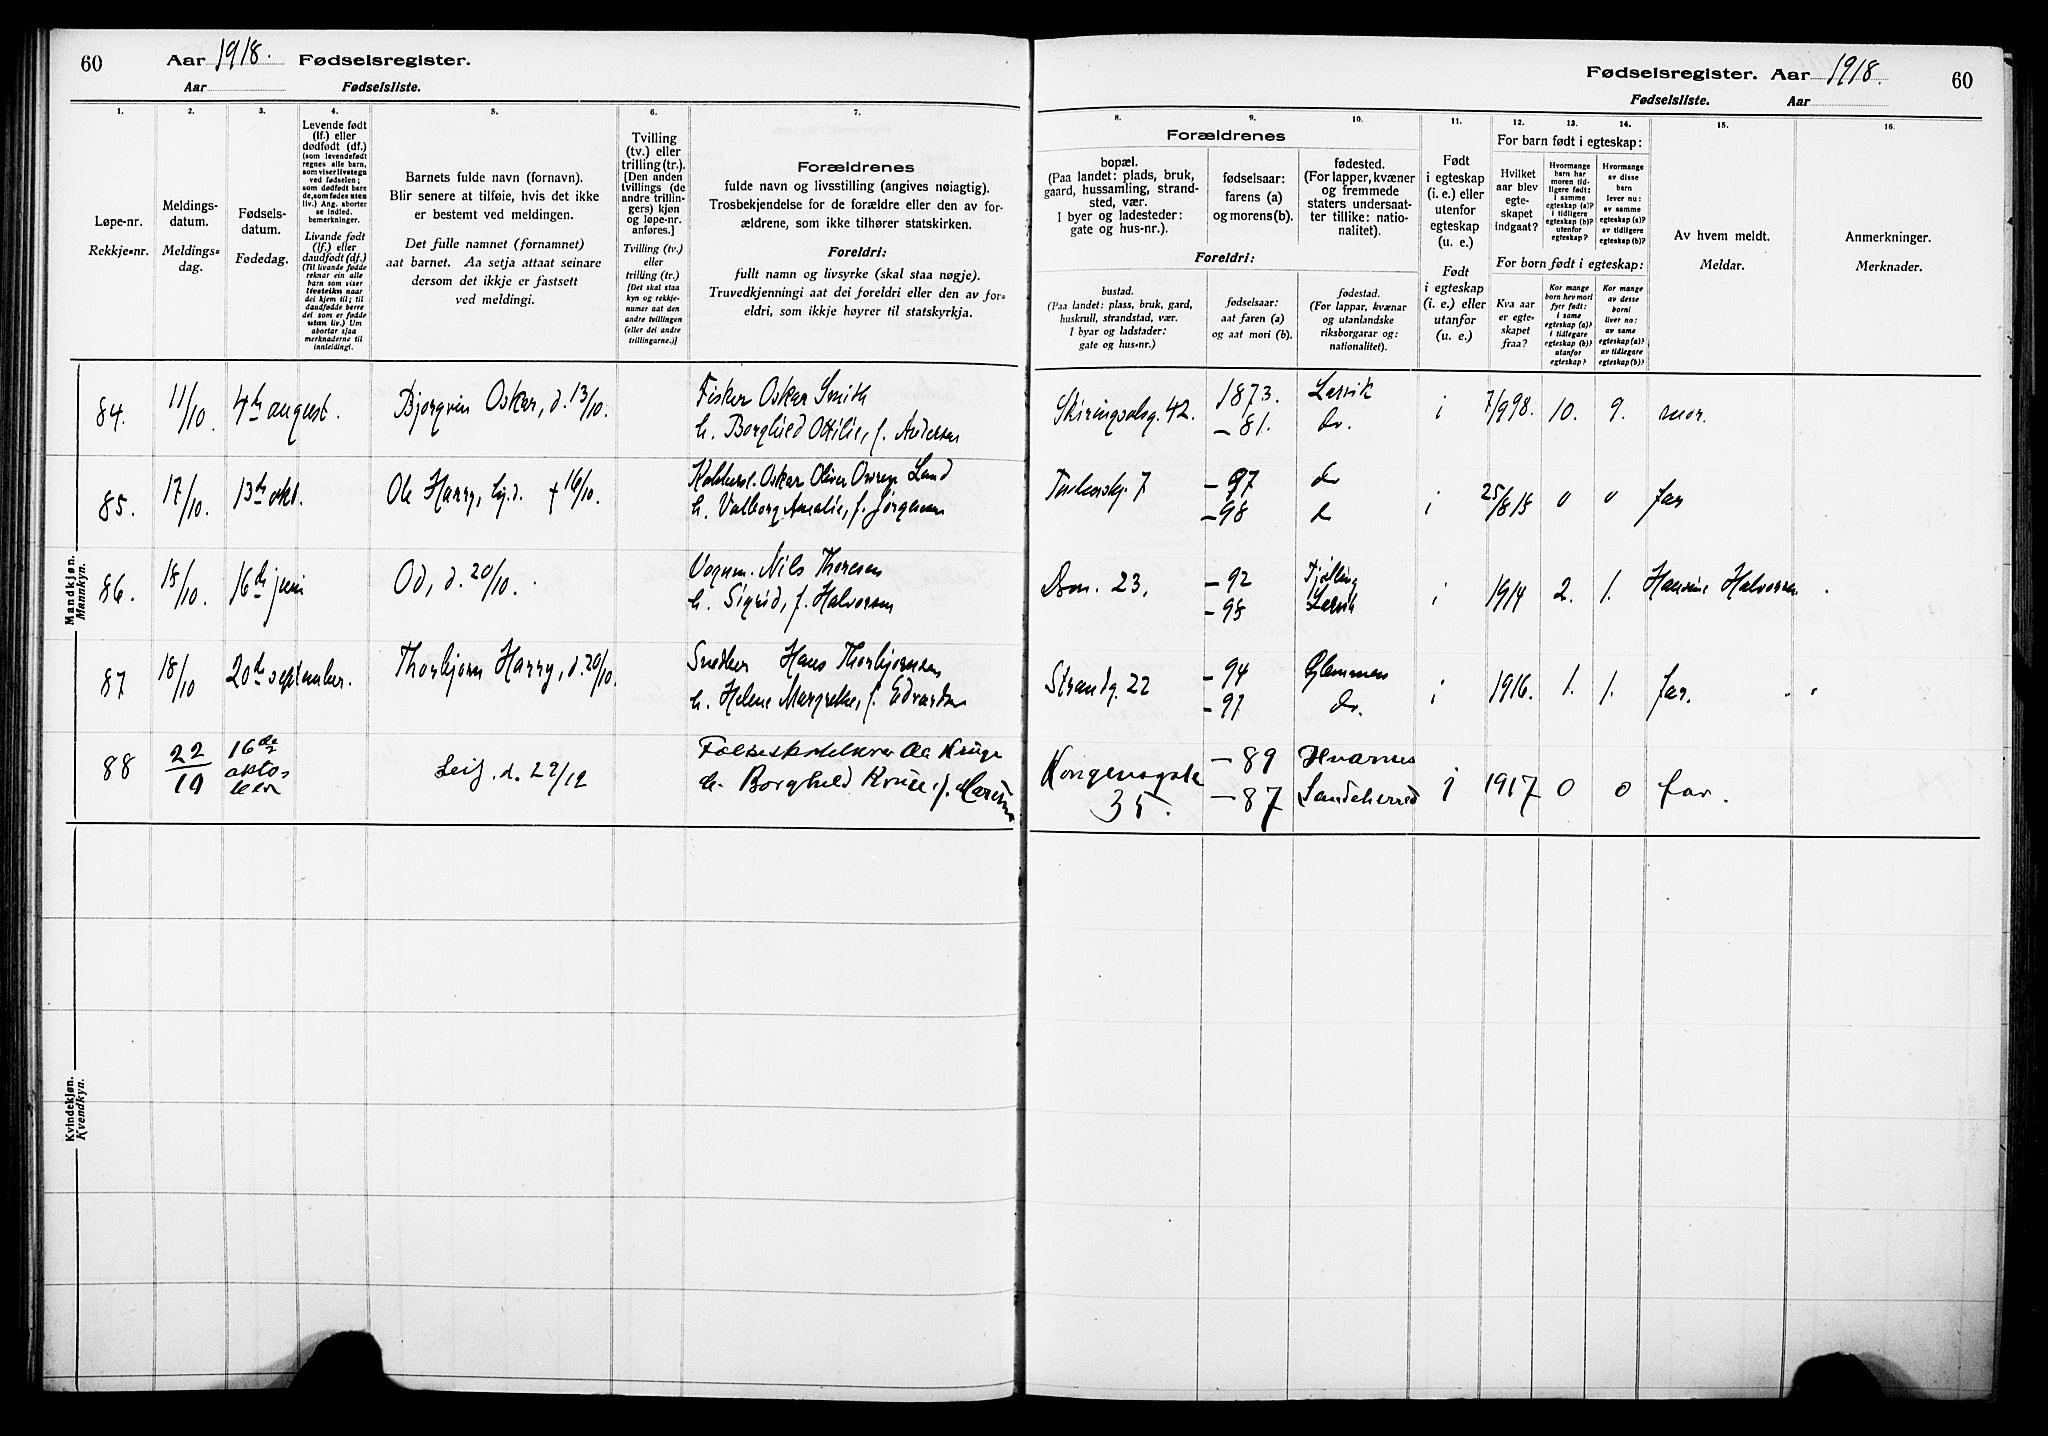 60
Aar 1918. Fødselsregister.
Aar Fødselsliste.
1.
Løpe-nr.
Rekkje=nr.
2.
Meldings-
datum.
Meldings=
dag.
3.
Fødsels-
datum.
Fødedag.
4.
Levende født
(lf.) eller
dødfødt (df.)
(som levendefødt
regnes alle barn,
som viser livstegn
ved fødselen;
som dødfødt bare
de, som fødes uten
liv.) Ang. aborter
se indled.
bemerkninger.
Livande født
(lf.) eller
daudfødt (df.)
(Til livande fødde
reknar ein alle
barn som viser
livsteikn naar
dei kjem til; til
daudfødde berre
dei som er fødde
utan liv.) Um
abortar sjaa
merknaderne til
innleidingi.
5.
Barnets fulde navn (fornavn).
Blir senere at tilføie, hvis det ikke
er bestemt ved meldingen.
Det fulle namnet (fornamnet)
aat barnet. Aa setja attaat seinare
dersom det ikkje er fastsett
ved meldingi.
6.
Tvilling
(tv.) eller
trilling (tr.).
[Den anden
tvillings (de
andre trillin-
gers) kjøn
og løpe-nr.
anføres.]
Tvilling (tv.)
eller
trilling (tr.)
[Det skal staa
kyn og rekkje-
numer aat den
andre tvillingen
(eller dei andre
trillingarne.)]
7.
Forældrenes
fulde navn og livsstilling (angives nøiagtig).
Trosbekjendelse for de forældre eller den av for-
ældrene, som ikke tilhører statskirken.
Foreldri:
fullt namn og livsyrke (skal staa nøgje).
Truvedkjenningi aat dei foreldri eller den av for=
eldri, som ikkje høyrer til statskyrkja.
Mandkjøn.
Mannkyn.
84. 11/10. 4de august. Bjørgvin Oskar, d. 13/10. Fisker Oskar Smith
h. Borghild Otilie, f. Andersen
85. 17/10. 13de okt. Ole Harry, hj.d. † 16/10. Oskar Oliver Lund
h. Valborg Amalie, f. Jørgensen
86. 18/10. 16de juni Od, d. 20/10. Vognm. Nils Thoresen
h. Sigrid, f. Halvorsen
87 18/10 20de september. Thorbjørn Harry, d. 20/10. Snedker Hans Thorbjørnsen
h. Helene Margrethe, f. Edvardsen
88 22/10 16de
okto-
ber Leif. d. 29/12 Ole Kruge
h. Borghild Kruge, f.
Kvindekjøn.
Kvendkyn.
Fødselsregister. Aar 1918. 60
Fødselsliste. Aar
Forældrenes
Foreldri:
8.
bopæl.
(Paa landet: plads, bruk,
gaard, hussamling, strand-
sted, vær.
I byer og ladesteder:
gate og hus-nr.).
bustad.
(Paa landet: plass, bruk, gard,
huskrull, strandstad, vær.
I byar og ladstader:
gate og hus=nr.)
9.
fødselsaar:
farens (a)
og morens (b).
fødselsaar:
aat faren (a)
og aat mori (b).
10.
fødested.
(For lapper, kvæner
og fremmede
staters undersaat-
ter tillike: natio-
nalitet).
fødestad.
(For lappar, kvænar
og utanlandske
riksborgarar og:
nationalitet).
11.
Født
i egteskap
(i. e.) eller
utenfor
egteskap
(u. e.)
Født
i egteskap
(i. e.) eller
utanfor
(u. e.)
12.
For barn født i egteskap:
Hvilket
aar blev
egte-
skapet
indgaat?
For born født i egteskap:
Kva aar
er egte-
skapet
fraa?
13.
Hvormange
barn har
moren tid-
ligere født:
i samme
egteskap (a)?
i tidligere
egteskap (b)?
utenfor
egteskap?
Kor mange
born hev mori
fyrr født:
i same
egteskap (a)?
i tidlegare
egteskap (b)?
utanfor
egteskap?
14.
Hvormange
av disse
barn
lever nu:
av samme
egteskap (a)?
av tidligere
egteskap (b)?
Kor mange
av desse
borni
liver no:
av same
egteskap (a)?
av tidlegare
egteskap (b)?
15.
Av hvem meldt.
Meldar.
16.
Anmerkninger.
Merknader.
Skiringsalsg. 42. 1873. Larvik i 7/9 98. 10. 9. mor.
– 81. do.
7 – 97 do i 25/8 18 0 0 far
– 98 do
Dron. 23, – 92 Tjølling i 1914 2. 1. Hansine Halvorsen
– 95 Larvik
Strandg. 22 – 94 Glemmen i 1916. 1. 1. far.
– 97. do.
Kongensgate – 89 Hvarnes i 1917 0 0 far.
35. – 87 Sandeherred